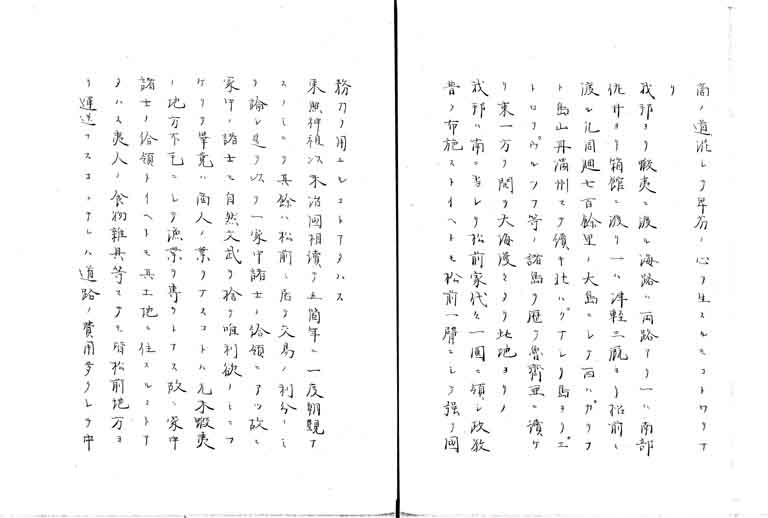 商ノ道汇レテ卑劣ノ心ヲ生スルモコトワリナ
リ
我邦ヨリ蝦夷ニ渡ル海路ハ両路アリ一ハ南部
佐井ヨリ箱館ニ渡リ一ハ津軽三厩ヨリ松前ニ
渡ル凡周廻七百餘里ノ大島ニシテ西ハカラフ
ト島山丹満州マテ續キ北ハクナシリ島ヨリエ
トロフウルツフ等ノ諸島ヲ歴テ魯齊亜ニ續ケ
リ東一方ヲ開テ大海漫々タリ此地ヨリ
我邦ハ南ニ当レリ松前家代々一圓ニ領シ政教
普ク布施ストイヘトモ松前一躰ニシテ強テ國
務刀ヲ用ユルコトアタハス
東照神祖以来治國相續ナ五箇年ニ一度朝覲ナ
スノミニテ其餘ハ松前ニ居テ交易ノ利分ノミ
ヲ論シ是ヲ以テ一家中諸士ノ給領ニアツ故ニ
家中ノ諸士モ自然文武ヲ捨テ唯利欲ノミニフ
ケリテ畢竟ハ商人ノ業ヲナスコトハ元木蝦夷
ノ地方不毛ニシテ漁業ヲ専ラトナス故ニ家中
諸士ノ給領トイヘトモ其土地ニ住スルコトア
タハス夷人ノ食物雜具等マテモ皆松前地方ヨ
リ運送ナスコナレハ道路ノ費用多クシテ中